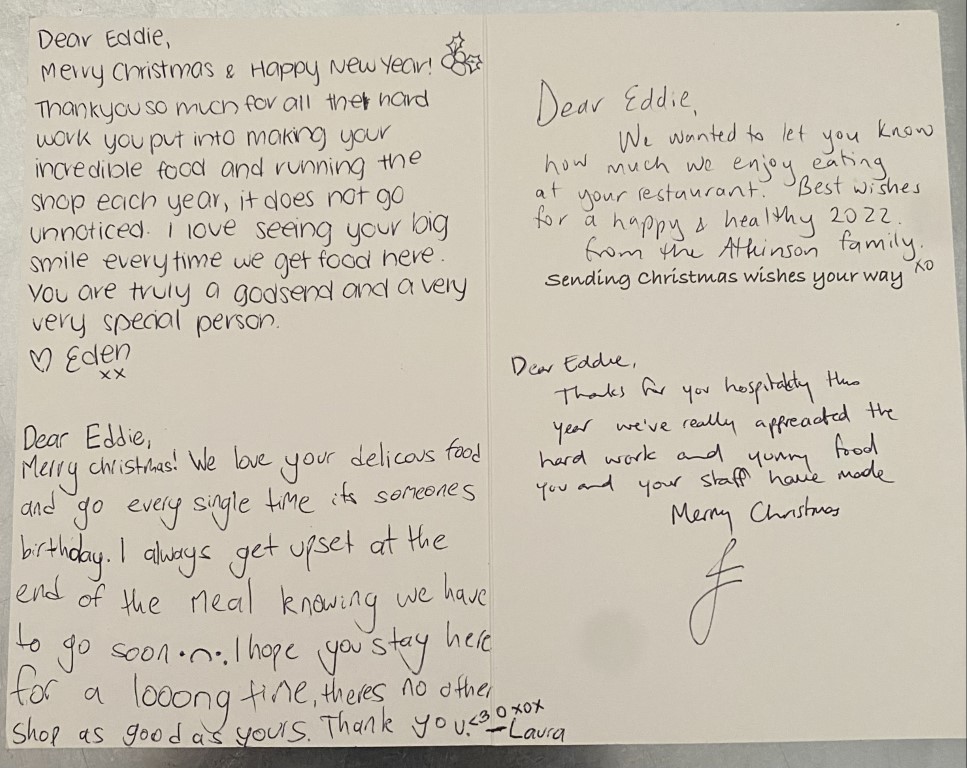 Dear Eddie,
Merry Christmas & Happy New Year!
Thankyou so much for all the hard
work you put into making your
incredible food and running the
shop each year, it does not go
unnoticed. I love seeing your big
smile everytime we get food here.
You are truly a godsend and a very
very special person.
♡ Eden
xx
Dear Eddie,
Merry christmas! We love your delicous food
and go every single time its someones
birthday. I always get upset at the
end of the meal knowing we have
to go soon •n•. I hope you stay here
for a looong time, theres no other
shop as good as yours. Thank you. <3 0 xox
– Laura
Dear Eddie,
We wanted to let you know
how much we enjoy eating
at your restaurant. Best wishes
for a happy & healthy 2022.
from the Atkinson family.
xo
sending christmas wishes your way
Dear Eddie,
Thanks for you hospitality this
year we've really appreacted the
hard work and yummy food
you and your staff have made
Merry Christmas